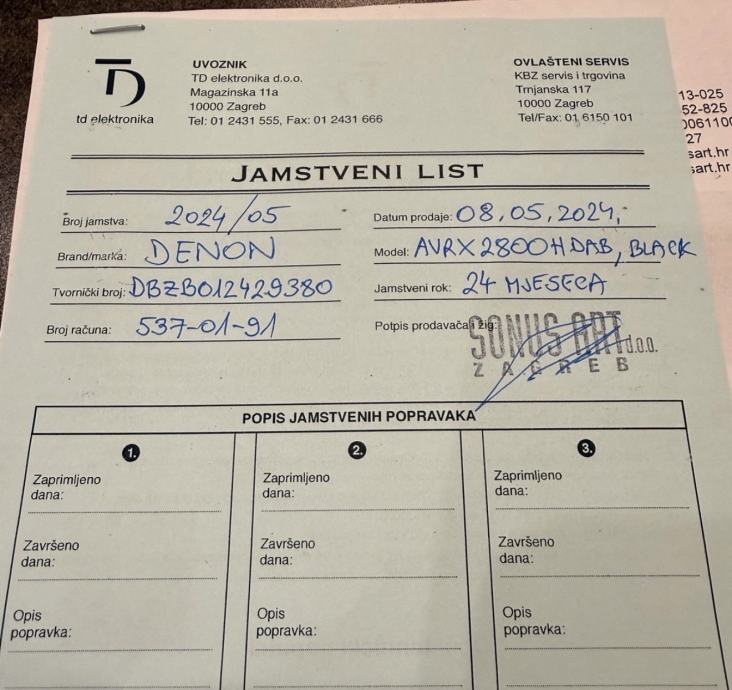 td elektronika
UVOZNIK
TD elektronika d.o.o.
Magazinska 11a
10000 Zagreb
Tel: 01 2431 555, Fax: 01 2431 666
OVLAŠTENI SERVIS
KBZ servis i trgovina
Trnjanska 117
10000 Zagreb
Tel/Fax: 01 6150 101
13-025
52-825
0061100
27
sart.hr
sart.hr
JAMSTVENI LIST
Broj jamstva: 2024/05
Datum prodaje: 08,05,2024,
Brand/marka: DENON
Model: AVRX2800H DAB, BLACK
Tvornički broj: DBZB012429380
Jamstveni rok: 24 MJESECA
Broj računa: 537-01-91
Potpis prodavača i žig:
SONUS ART d.o.o.
ZAGREB
POPIS JAMSTVENIH POPRAVAKA
1.
Zaprimljeno
dana:
Završeno
dana:
Opis
popravka:
2.
Zaprimljeno
dana:
Završeno
dana:
Opis
popravka:
3.
Zaprimljeno
dana:
Završeno
dana:
Opis
popravka: